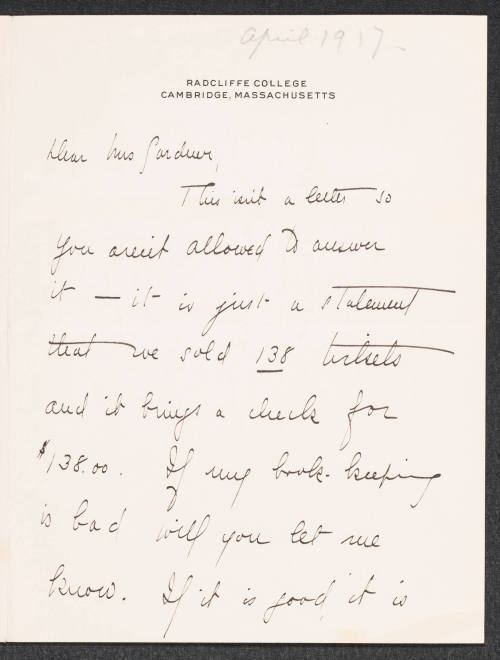 april 1917.
RADCLIFFE COLLEGE
CAMBRIDGE, MASSACHUSETTS
Dear Mrs Gardner,
This isn't a letter so
you aren't allowed to answer
it — it is just a statement
that we sold 138 tickets
and it brings a check for
$138.00. If my book-keeping
is bad will you let me
know. If it is good it is